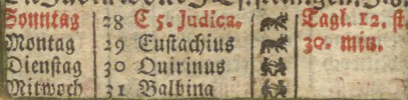 Sonntag 28 C 5. Judica. Tagl. 12. st
Montag 29 Eustachius 30. min.
Dienstag 30 Quirinus
Mitwoch 31 Balbina